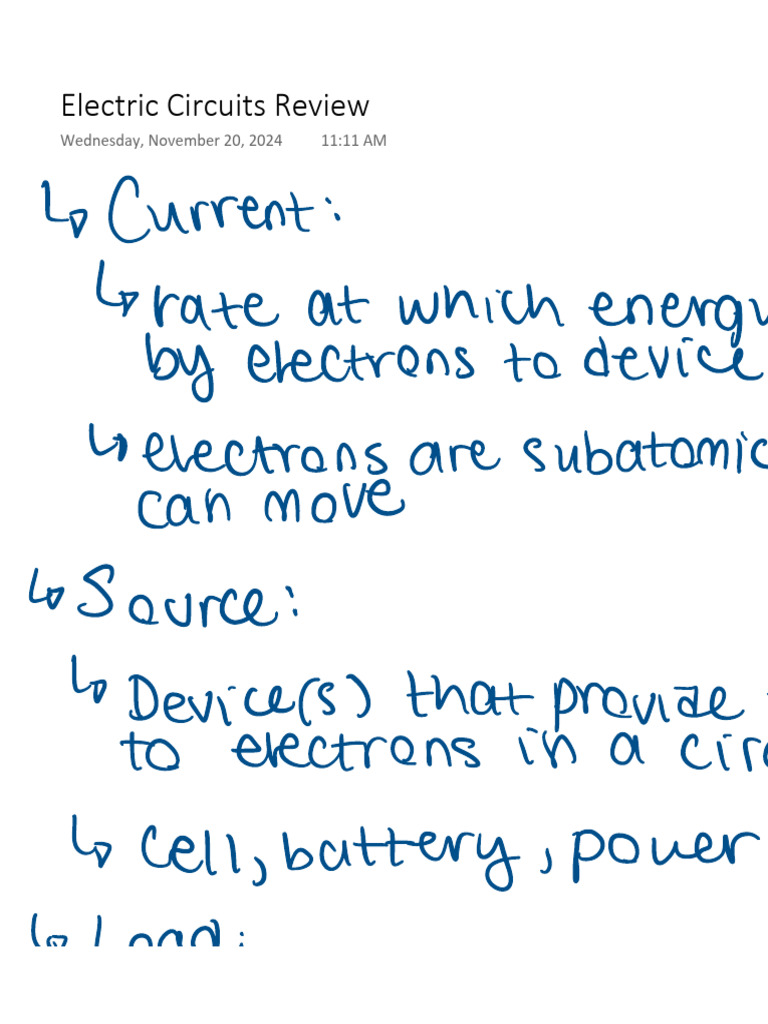 Electric Circuits Review
Wednesday, November 20, 2024 11:11 AM
↳ Current:
↳ rate at which energy
by electrons to device
↳ electrons are subatomic
can move
↳ Source:
↳ Device(s) that provide
to electrons in a circ
↳ cell, battery, power
↳ Load: